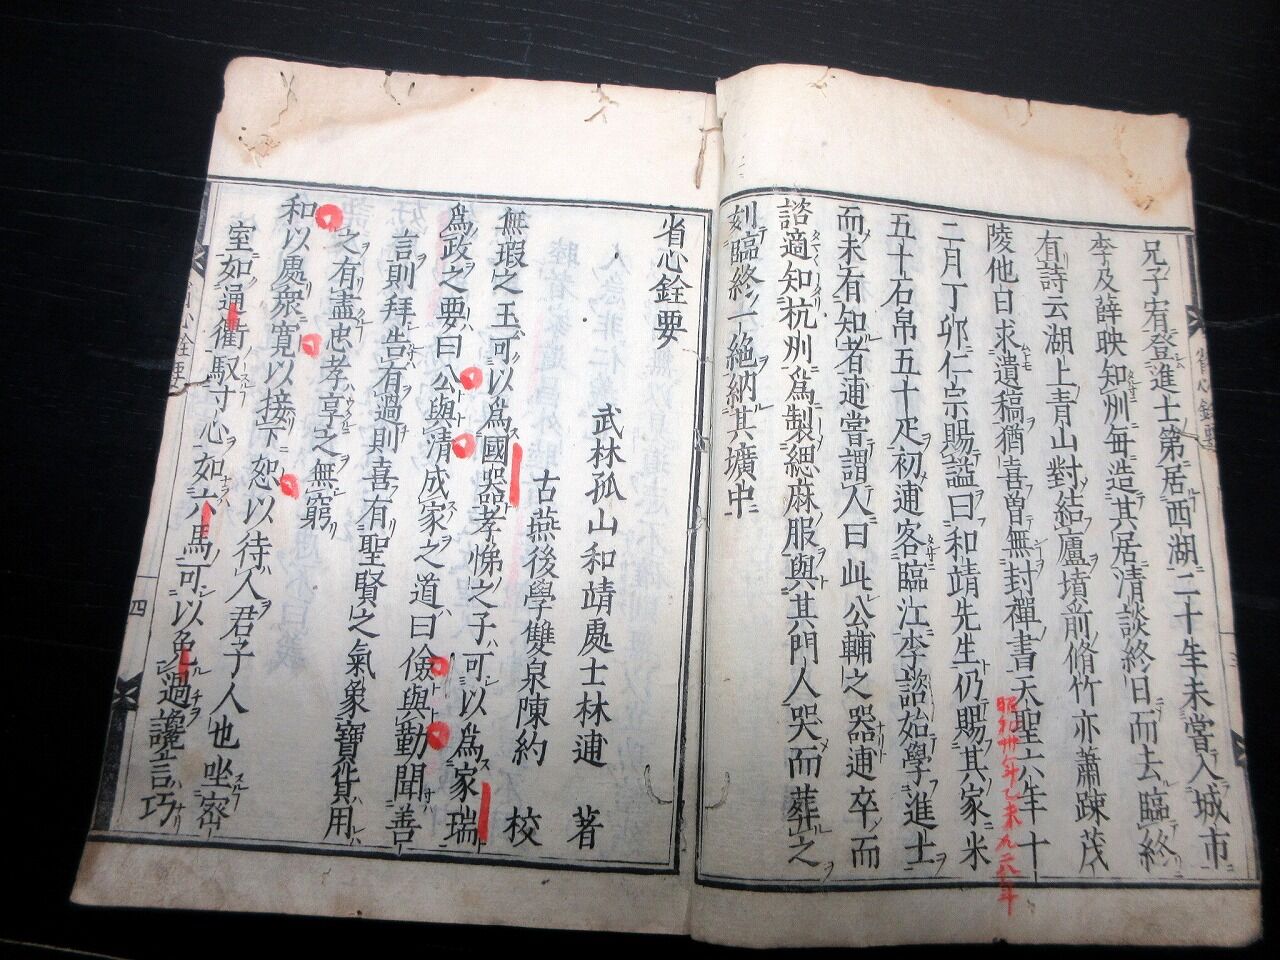 兄子宥登進士第居西湖二十年未嘗入城市
李及薛映知州毎造其居清談終日而去臨終
有詩云湖上青山對結廬墳前脩竹亦蕭疎茂
陵他日求遺稿猶喜曽無封禪書天聖六年十
昭和卅年乙未九二八年
二月丁卯仁宗賜謚曰和靖先生仍賜其家米
五十石帛五十疋初逋客臨江李諮始學進士
而未有知者逋嘗謂人曰此公輔之器逋卒而
諮適知杭州爲製緦麻服與其門人哭而葬之
刻臨終一絶納其壙中
省心銓要
武林孤山和靖處士林逋 著
古燕後學雙泉陳約 校
無瑕之玉可以爲國器孝悌之子可以爲家瑞
爲政之要曰公與清成家之道曰儉與勤聞善
言則拜告有過則喜有聖賢之氣象寶貨用
之有盡忠孝享之無窮
和以處衆寛以接下恕以待人君子人也坐密
室如通衢馭寸心如六馬可以免過讒言巧
四